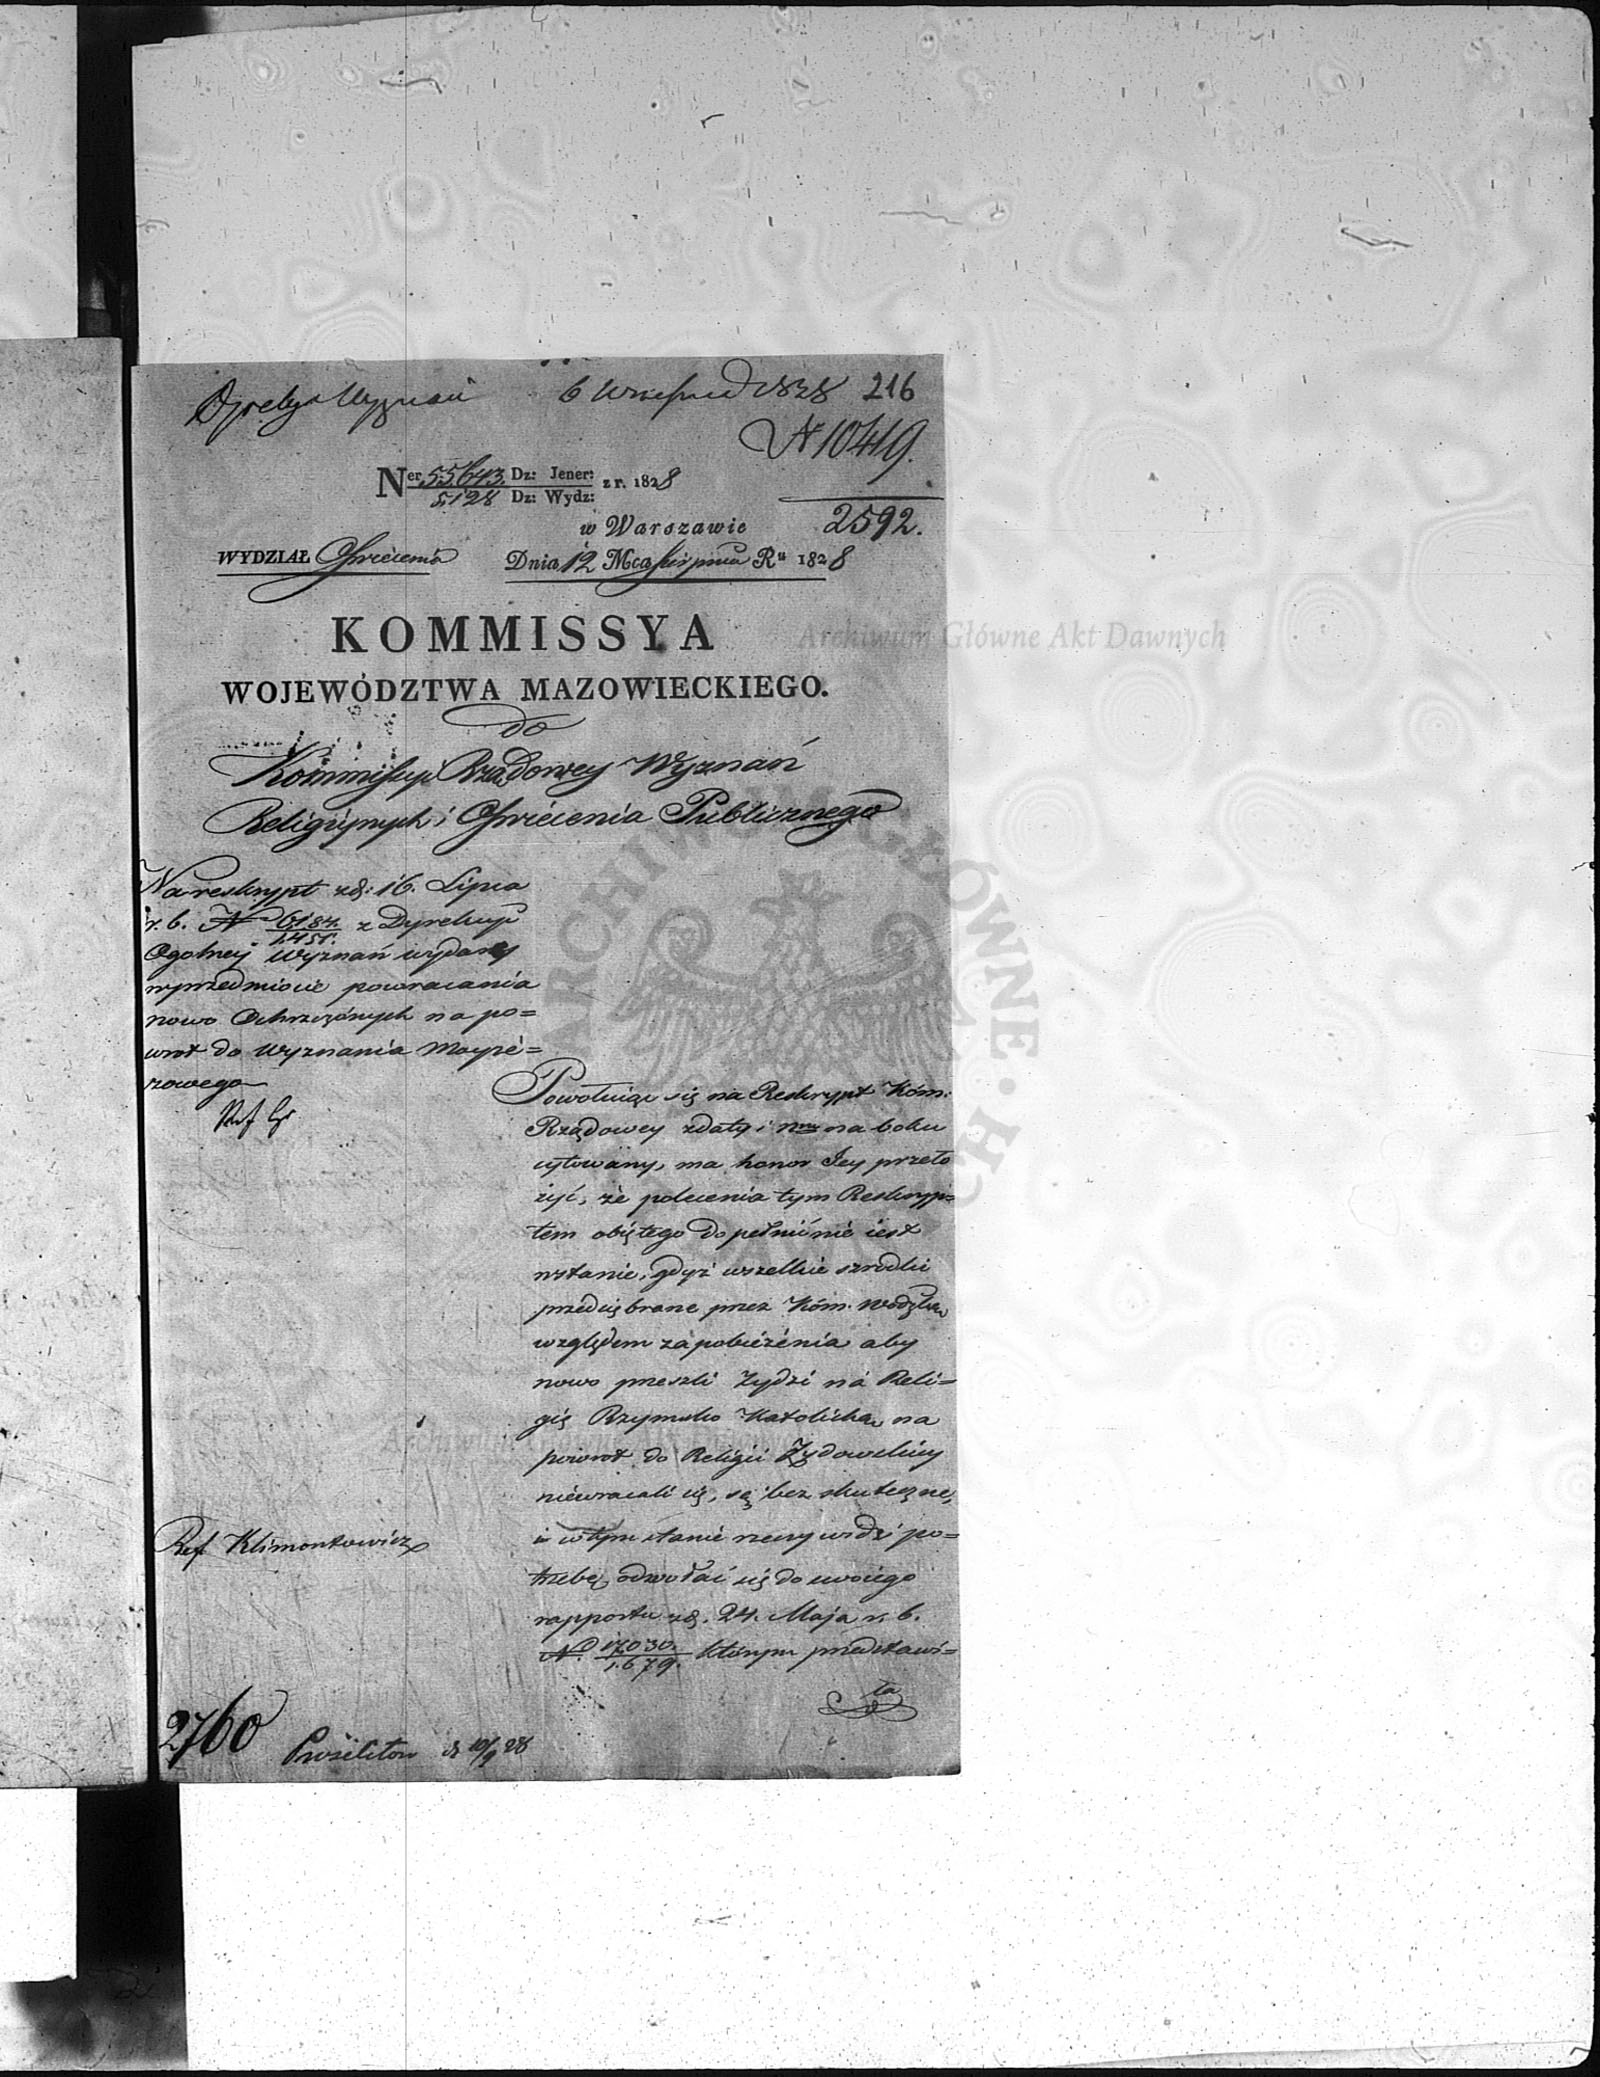 Dyrekcya Wyznań 6 Września 1828 216
N 10419.
2592.
Ner 55643. Dz: Jener: z r. 1828
5128 Dz: Wydz:
w Warszawie
WYDZIAŁ Oświecenia Dnia 12 Mca Sierpnia Ru 1828
KOMMISSYA
WOJEWÓDZTWA MAZOWIECKIEGO.
do
Kommissyi Rządowey Wyznań
Religijnych i Oświecenia Publicznego
Na reskrypt zd: 16. Lipca
r. b. N 6187. z Dyrekcyi
1451.
Ogolney Wyznań wydany
w przedmiocie powracania
nowo Ochrzczonych na po=
wrot do Wyznania Moyże=
szowego
Powołuiąc się na Reskrypt Kom:
Rządowey z daty i nru na boku
cytowany, ma honor Jey przeło
żyć, że polecenia tym Reskryp=
tem obiętego dopełnić nie iest
wstanie, gdyż wszelkie szrodki
przedsiębrane przez Kom. Wodztwa
względem zapobieżenia aby
nowo przeszli Żydzi na Reli=
gię Rzymsko Katolicką na
powrot do Religii Żydowskiey
niewracali się, są bez skuteczne,
i w tym stanie rzeczy widzi po=
trzebę odwołać się do swoiego
rapportu zd. 24. Maja r. b.
No. 17030. którym przedstawi=
1.679.
ła
Ref Klimontowicz
2760 Prozelitow d 10/9 28
Archiwum Główne Akt Dawnych
ARCHIWUM GŁÓWNE
Archiwum Główne Akt Dawnych